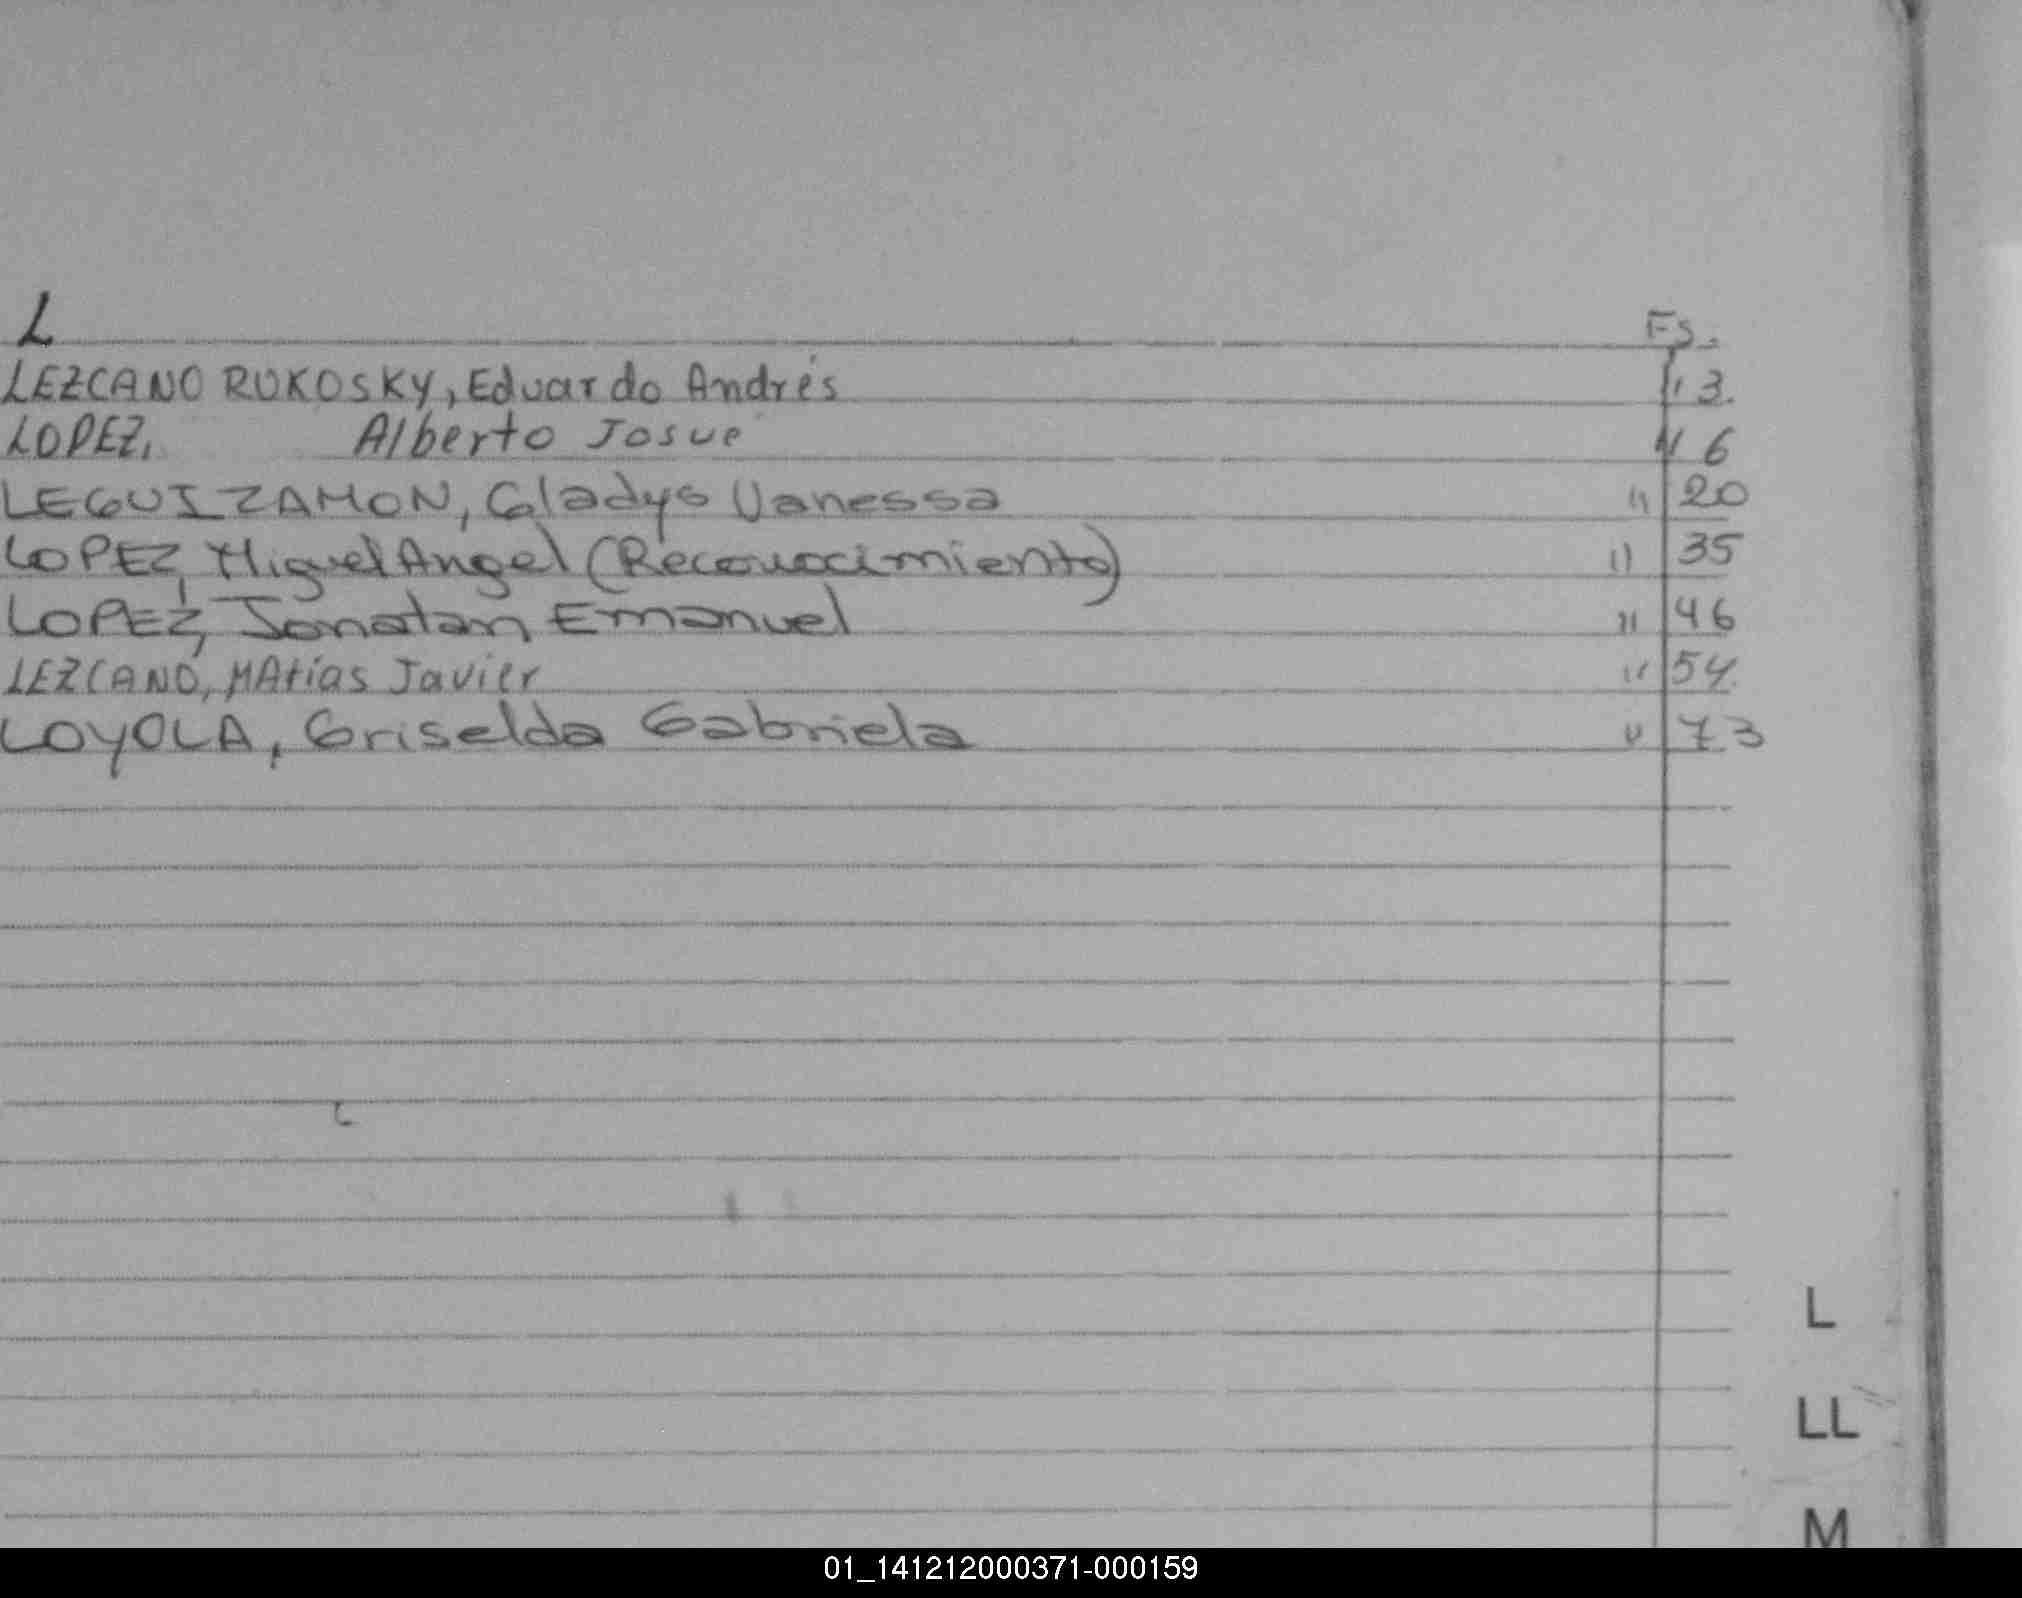 L Fs.
LEZCANO RUKOSKY, Eduardo Andrés " 3.
LOPEZ, Alberto Josue " 6
LEGUIZAMON, Gladys Vanessa " 20
LOPEZ, Miguel Angel (Reconocimiento) " 35
LOPEZ, Jonatan Emanuel " 46
LEZCANO, MAtías Javier " 54.
LOYOLA, Griselda Gabriela " 73
L
LL
M
01_141212000371-000159